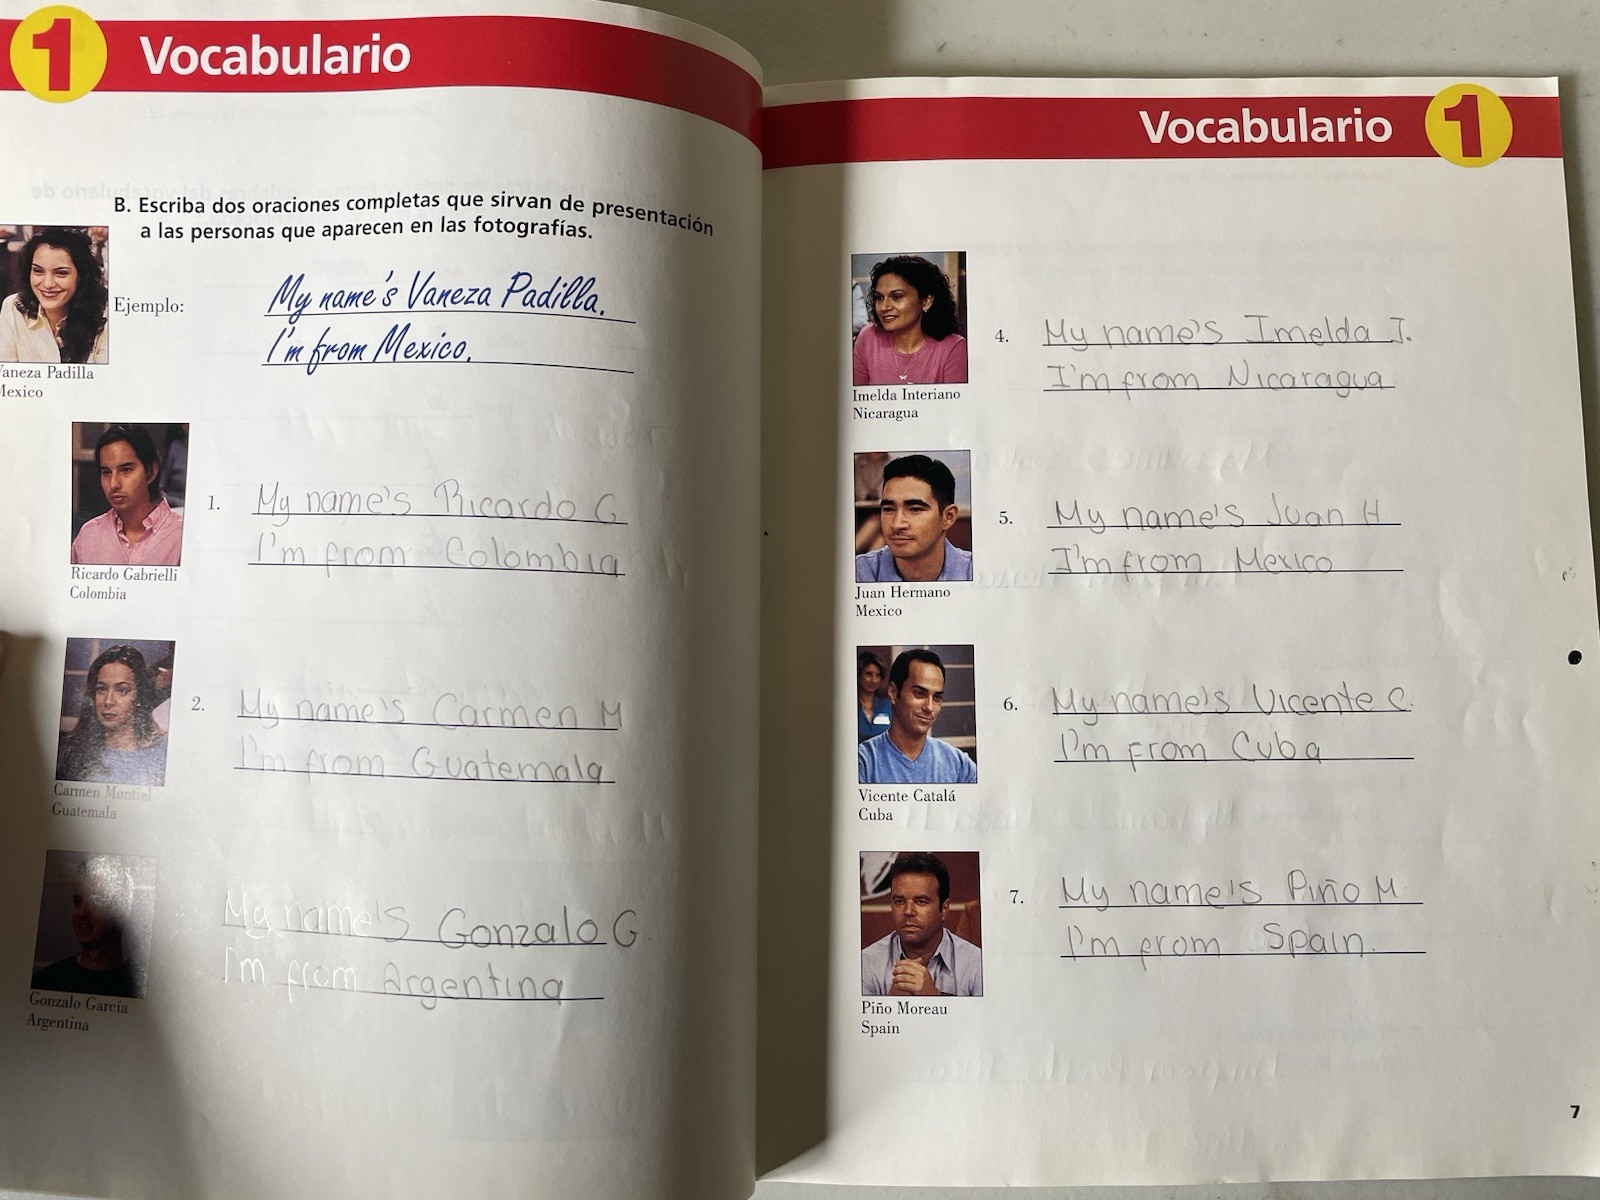 1 Vocabulario
B. Escriba dos oraciones completas que sirvan de presentación
a las personas que aparecen en las fotografías.
Ejemplo:
My name's Vaneza Padilla.
I'm from Mexico.
Vaneza Padilla
Mexico
1.
My name's Ricardo G
I'm from Colombia
Ricardo Gabrielli
Colombia
2.
My name's Carmen M
I'm from Guatemala
Carmen Montiel
Guatemala
My name's Gonzalo G
I'm from Argentina
Gonzalo García
Argentina
Vocabulario 1
4.
My name's Imelda I.
I'm from Nicaragua
Imelda Interiano
Nicaragua
5.
My name's Juan H
I'm from Mexico
Juan Hermano
Mexico
6.
My name's Vicente C.
I'm from Cuba
Vicente Catalá
Cuba
7.
My name's Piño M.
I'm from Spain.
Piño Moreau
Spain
7